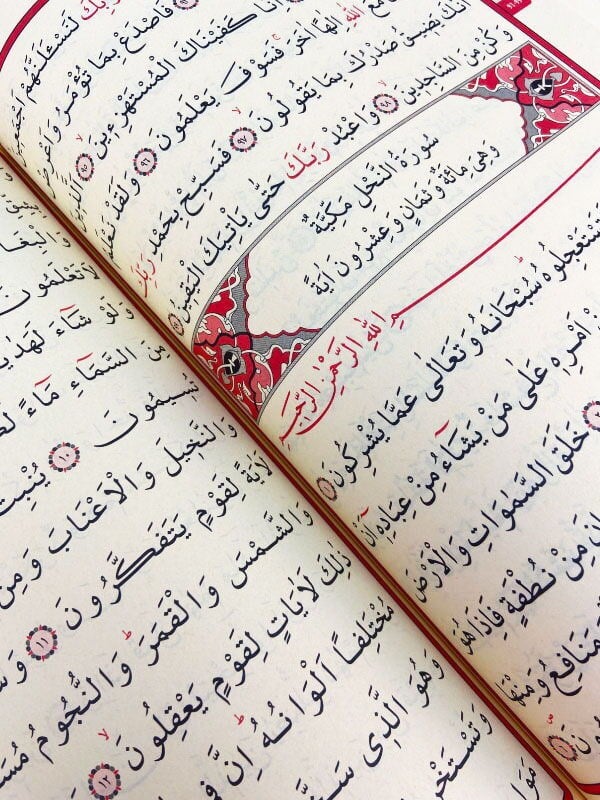 رَبِّكَ لَنَسْـَٔلَنَّهُمْ اَجْمَعِينَ
فَاصْدَعْ بِمَا تُؤْمَرُ وَاَعْرِضْ
اِنَّا كَفَيْنَاكَ الْمُسْتَهْزِءِينَ ٩٥ اَلَّذِينَ
مَعَ اللّٰهِ اِلٰهًا اٰخَرَ فَسَوْفَ يَعْلَمُونَ ٩٦ وَلَقَدْ نَعْلَمُ
اَنَّكَ يَضِيقُ صَدْرُكَ بِمَا يَقُولُونَ ٩٧ فَسَبِّحْ بِحَمْدِ رَبِّكَ
وَكُنْ مِنَ السَّاجِدِينَ ٩٨ وَاعْبُدْ رَبَّكَ حَتّٰى يَاْتِيَكَ الْيَقِينُ ٩٩
سُورَةُ النَّحْلِ مَكِّيَّةٌ
وَهِىَ مِائَةٌ وَثَمَانٍ وَعِشْرُونَ اٰيَةً
مِ اللّٰهِ الرَّحْمٰنِ الرَّحِيمِ
تَسْتَعْجِلُوهُ سُبْحَانَهُ وَتَعَالٰى عَمَّا يُشْرِكُونَ ١
اَمْرِهِ عَلٰى مَنْ يَشَاءُ مِنْ عِبَادِهِ اَنْ
خَلَقَ السَّمٰوَاتِ وَالْاَرْضَ
مِنْ نُطْفَةٍ فَاِذَا هُوَ
وَمَنَافِعُ وَمِنْهَا
وَالْبِغَا
لَا تَعْلَمُونَ
وَلَوْ شَاءَ لَهَدٰي
مِنَ السَّمَاءِ مَاءً لَ
تُسِيمُونَ ١٠ يُنْبِتُ
وَالنَّخِيلَ وَالْاَعْنَابَ وَمِنْ
لَاٰيَةً لِقَوْمٍ يَتَفَكَّرُونَ ١١ وَسَ
وَالشَّمْسَ وَالْقَمَرَ وَالنُّجُومُ مُسَ
ذٰلِكَ لَاٰيَاتٍ لِقَوْمٍ يَعْقِلُونَ ١٢
مُخْتَلِفًا اَلْوَانُهُ اِنَّ فِى
وَهُوَ الَّذِى سَ
وَتَسْتَخْرِ